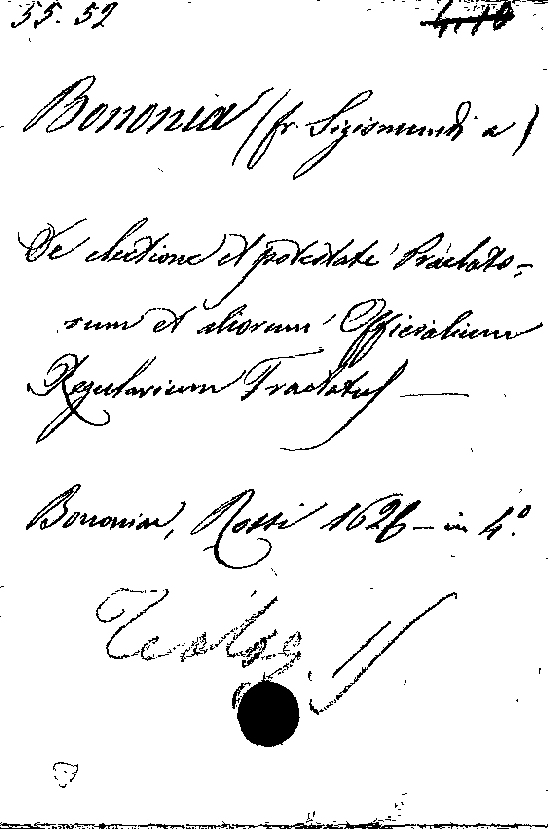 55. 52
Bononia (fr Sigismundi a)
De electione et potestate Praelato-
rum et aliorum Officialium
Regularium Tractatus —
Bononiae, Rossi 1626 — in 4.º
Teolog.